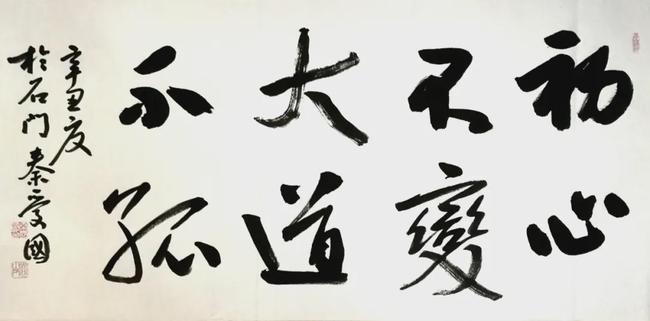 初心
不變
大道
不孤
辛丑夏
於石門秦愛國